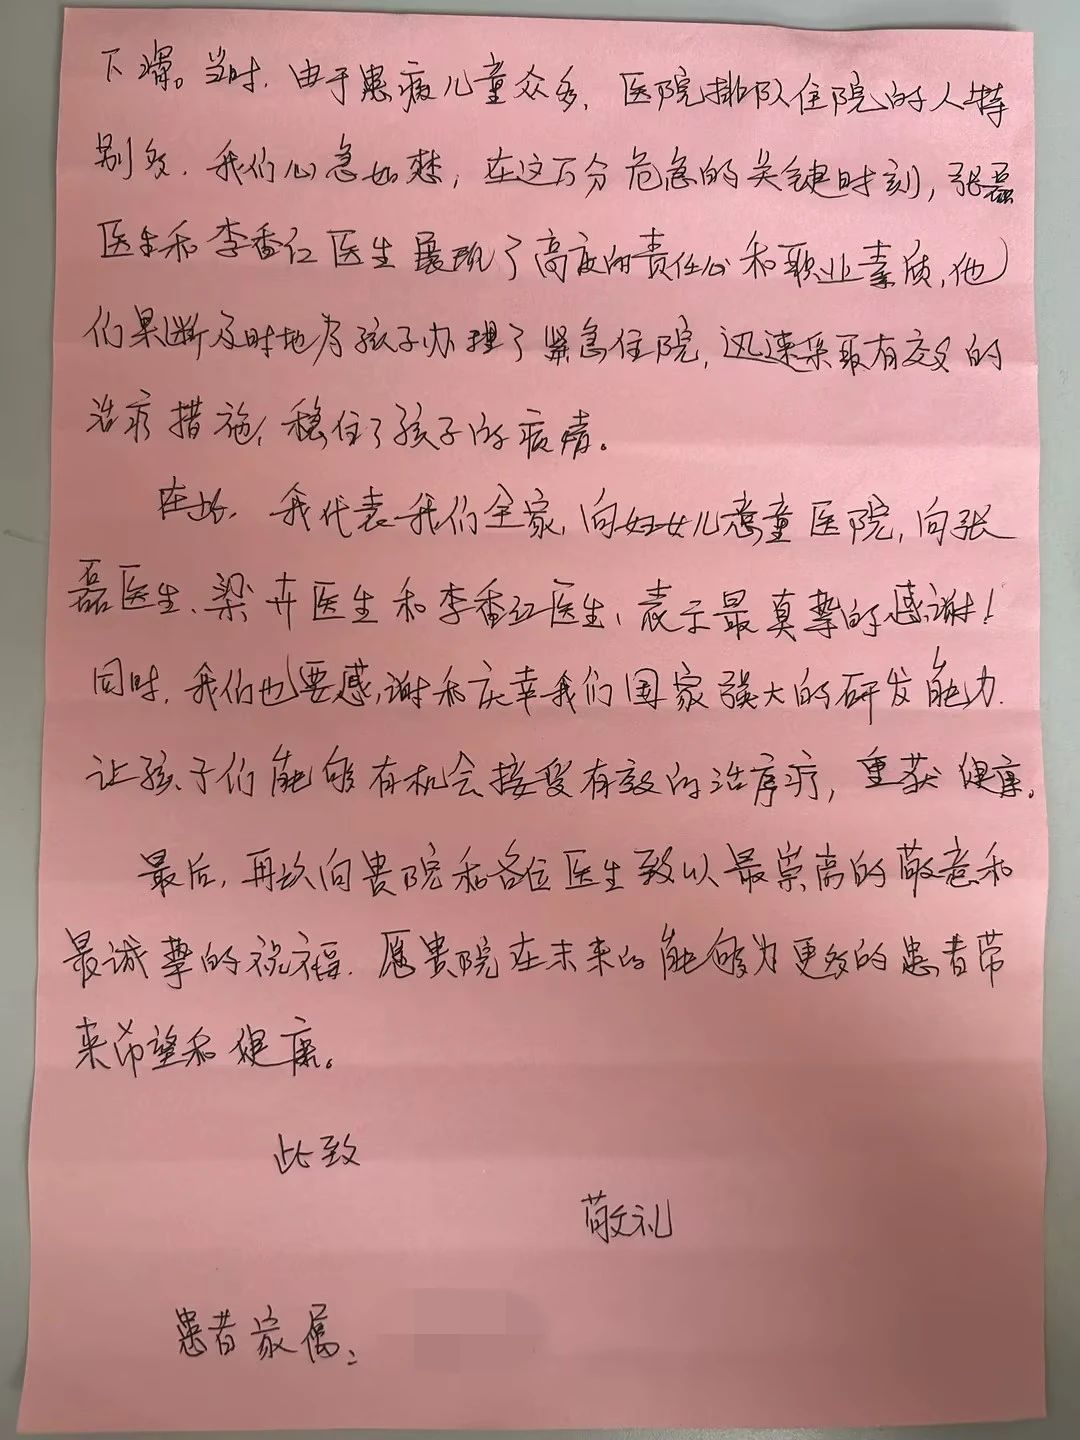 下滑。当时,由于患病儿童众多,医院排队住院的人特
别多,我们心急如焚,在这万分危急的关键时刻,张磊
医生和李香红医生展现了高度的责任心和职业素质,他
们果断及时地为孩子办理了紧急住院,迅速采取有效的
治疗措施,稳住了孩子的病情。
在此,我代表我们全家,向妇女儿童医院,向张
磊医生、梁卉医生和李香红医生、表示最真挚的感谢!
同时,我们也要感谢和庆幸我们国家强大的研发能力.
让孩子们能够有机会接受有效的治疗,重获健康。
最后,再次向贵院和各位医生致以最崇高的敬意和
最诚挚的祝福.愿贵院在未来的能够为更多的患者带
来希望和健康。
此致
敬礼
患者家属: